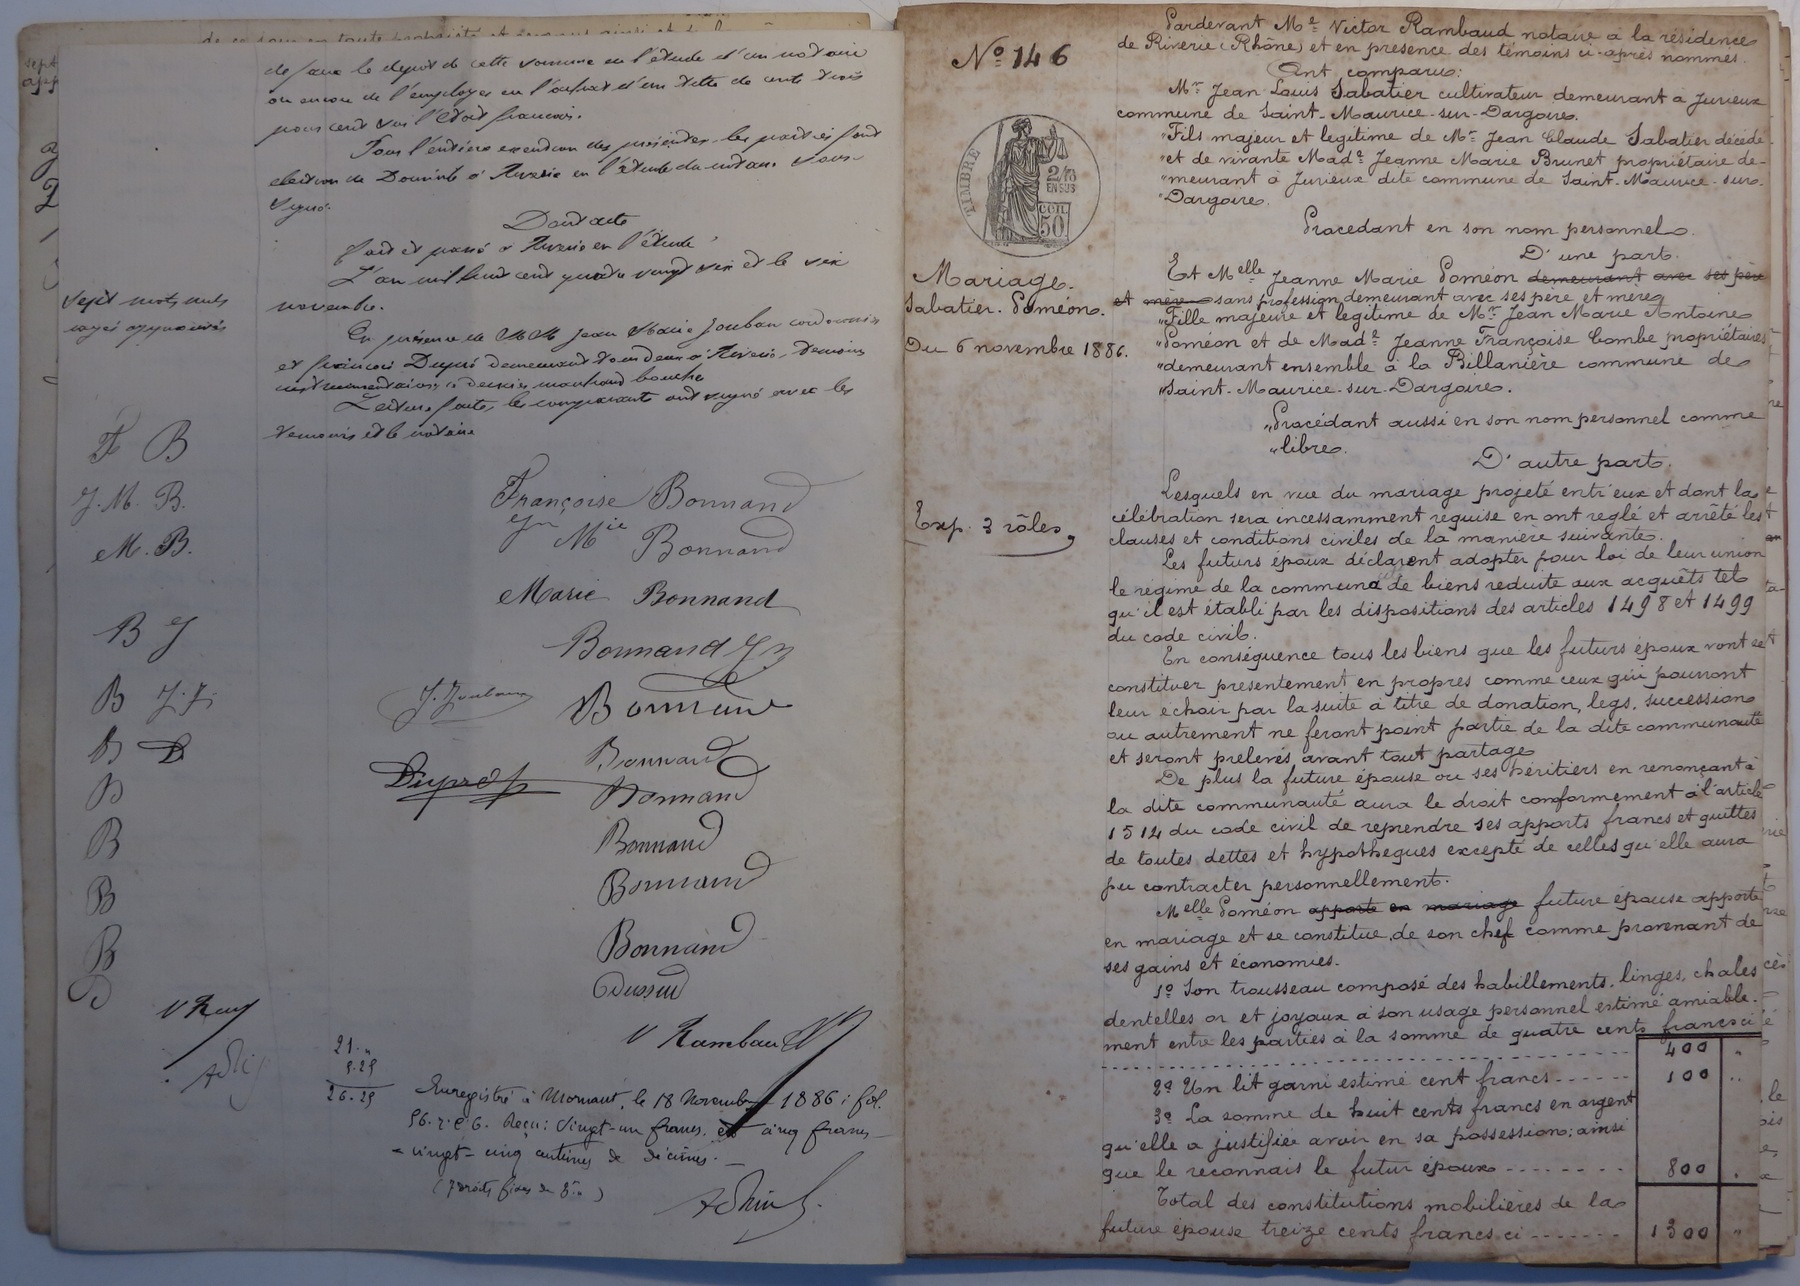 de faire le dépôt de cette somme en l'étude d'un notaire
ou encore de l'employer en l'achat d'un titre de rente trois
pour cent sur l'état français.
Pour l'entière exécution des présentes les parties font
élection de Domicile à Riverie en l'étude du notaire sous-
signé.
Dont acte
fait et passé à Riverie en l'étude
L'an mil huit cent quatre vingt six et le six
novembre.
Sept mots nuls
rayés approuvés
En présence de MM Jean Marie Jouban cordonnier
et François Dupré demeurant tous deux à Riverie, témoins
instrumentaires, ce dernier marchand boucher
Lecture faite, les comparants ont signé avec les
témoins et le notaire
F B
J. M. B.
M. B.
B J
B J. J.
B D
B
B
B
B
B
Françoise Bonnand
Jn Mie Bonnand
Marie Bonnand
Bonnand Jn
J. Jouban
Bonnand
Bonnand
Dupré
Bonnand
Bonnand
Bonnand
Bonnand
V Rambaud
21. "
5.25
26.25
Enregistré à Mornant, le 18 Novembre 1886, fol.
56. r. c 6. Reçu: Vingt-un francs, et cinq francs
vingt-cinq centimes de décimes.
(7 droits fixes de 3f.)
Nº 146
TIMBRE
2/10
EN SUS
50
Mariage.
Sabatier. Poméon.
Du 6 novembre 1886.
Exp. 3 rôles
Pardevant Me Victor Rambaud notaire à la résidence
de Riverie (Rhône) et en présence des témoins ci-après nommés.
Ont comparu:
Mr Jean Louis Sabatier cultivateur demeurant à Jurieux
commune de Saint-Maurice-sur-Dargoire.
"Fils majeur et legitime de Mr Jean Claude Sabatier décédé
"et de vivante Made Jeanne Marie Brunet propriétaire de-
"meurant à Jurieux dite commune de Saint-Maurice-sur-
"Dargoire.
Procedant en son nom personnel.
D'une part.
Et Melle Jeanne Marie Poméon demeurant avec ses père
et mère sans profession demeurant avec ses père et mère
"Fille majeure et legitime de Mr Jean Marie Antoine
"Poméon et de Made Jeanne Françoise Combe propriétaires
"demeurant ensemble à la Billanière commune de
"Saint-Maurice-sur-Dargoire.
"Procédant aussi en son nom personnel comme
"libre.
D'autre part.
Lesquels en vue du mariage projeté entr'eux et dont la
célébration sera incessamment requise en ont reglé et arrêté les
clauses et conditions civiles de la manière suivante.
Les futurs époux déclarent adopter pour loi de leur union
le régime de la communa de biens reduite aux acquêts tel
qu'il est établi par les dispositions des articles 1498 et 1499
du code civil.
En conséquence tous les biens que les futurs époux vont se
constituer presentement en propres comme ceux qui pourront
leur echoir par la suite à titre de donation, legs, succession
ou autrement ne feront point partie de la dite communauté
et seront prelevés avant tout partage
De plus la future épouse ou ses héritiers en renonçant à
la dite communauté aura le droit conformement à l'article
1514 du code civil de reprendre ses apports francs et quittes
de toutes dettes et hypothegues excepté de celles qu'elle aura
pu contracter personnellement.
Melle Poméon apporte en mariage future épouse apporte
en mariage et se constitue de son chef comme provenant de
ses gains et économies.
1º Son trousseau composé des habillements, linges, chales
dentelles or et joyaux à son usage personnel estimé amiable-
ment entre les parties à la somme de quatre cents francs ci
400 "
2º Un lit garni estimé cent francs ------ 100 "
3º La somme de huit cents francs en argent
qu'elle a justifiée avoir en sa possession; ainsi
que le reconnais le futur époux -------- 800 "
Total des constitutions mobilières de la
future épouse treize cents francs ci ------- 1300 "